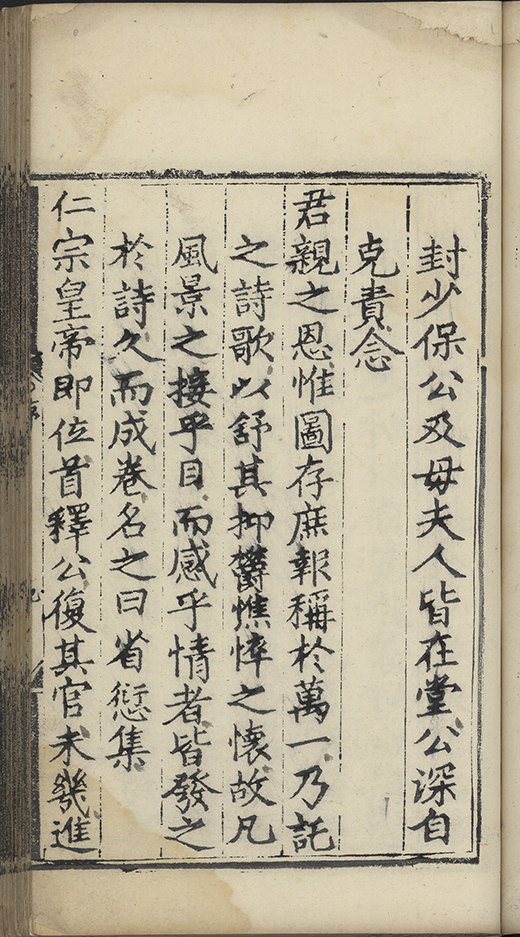 封少保公及母夫人皆在堂公深自
克責念
君親之恩惟圖存庶報稱於萬一乃託
之詩歌以舒其抑欝憔悴之懷故凡
風景之接乎目而感乎情者皆發之
於詩久而成卷名之曰省愆集
仁宗皇帝即位首釋公復其官未幾進